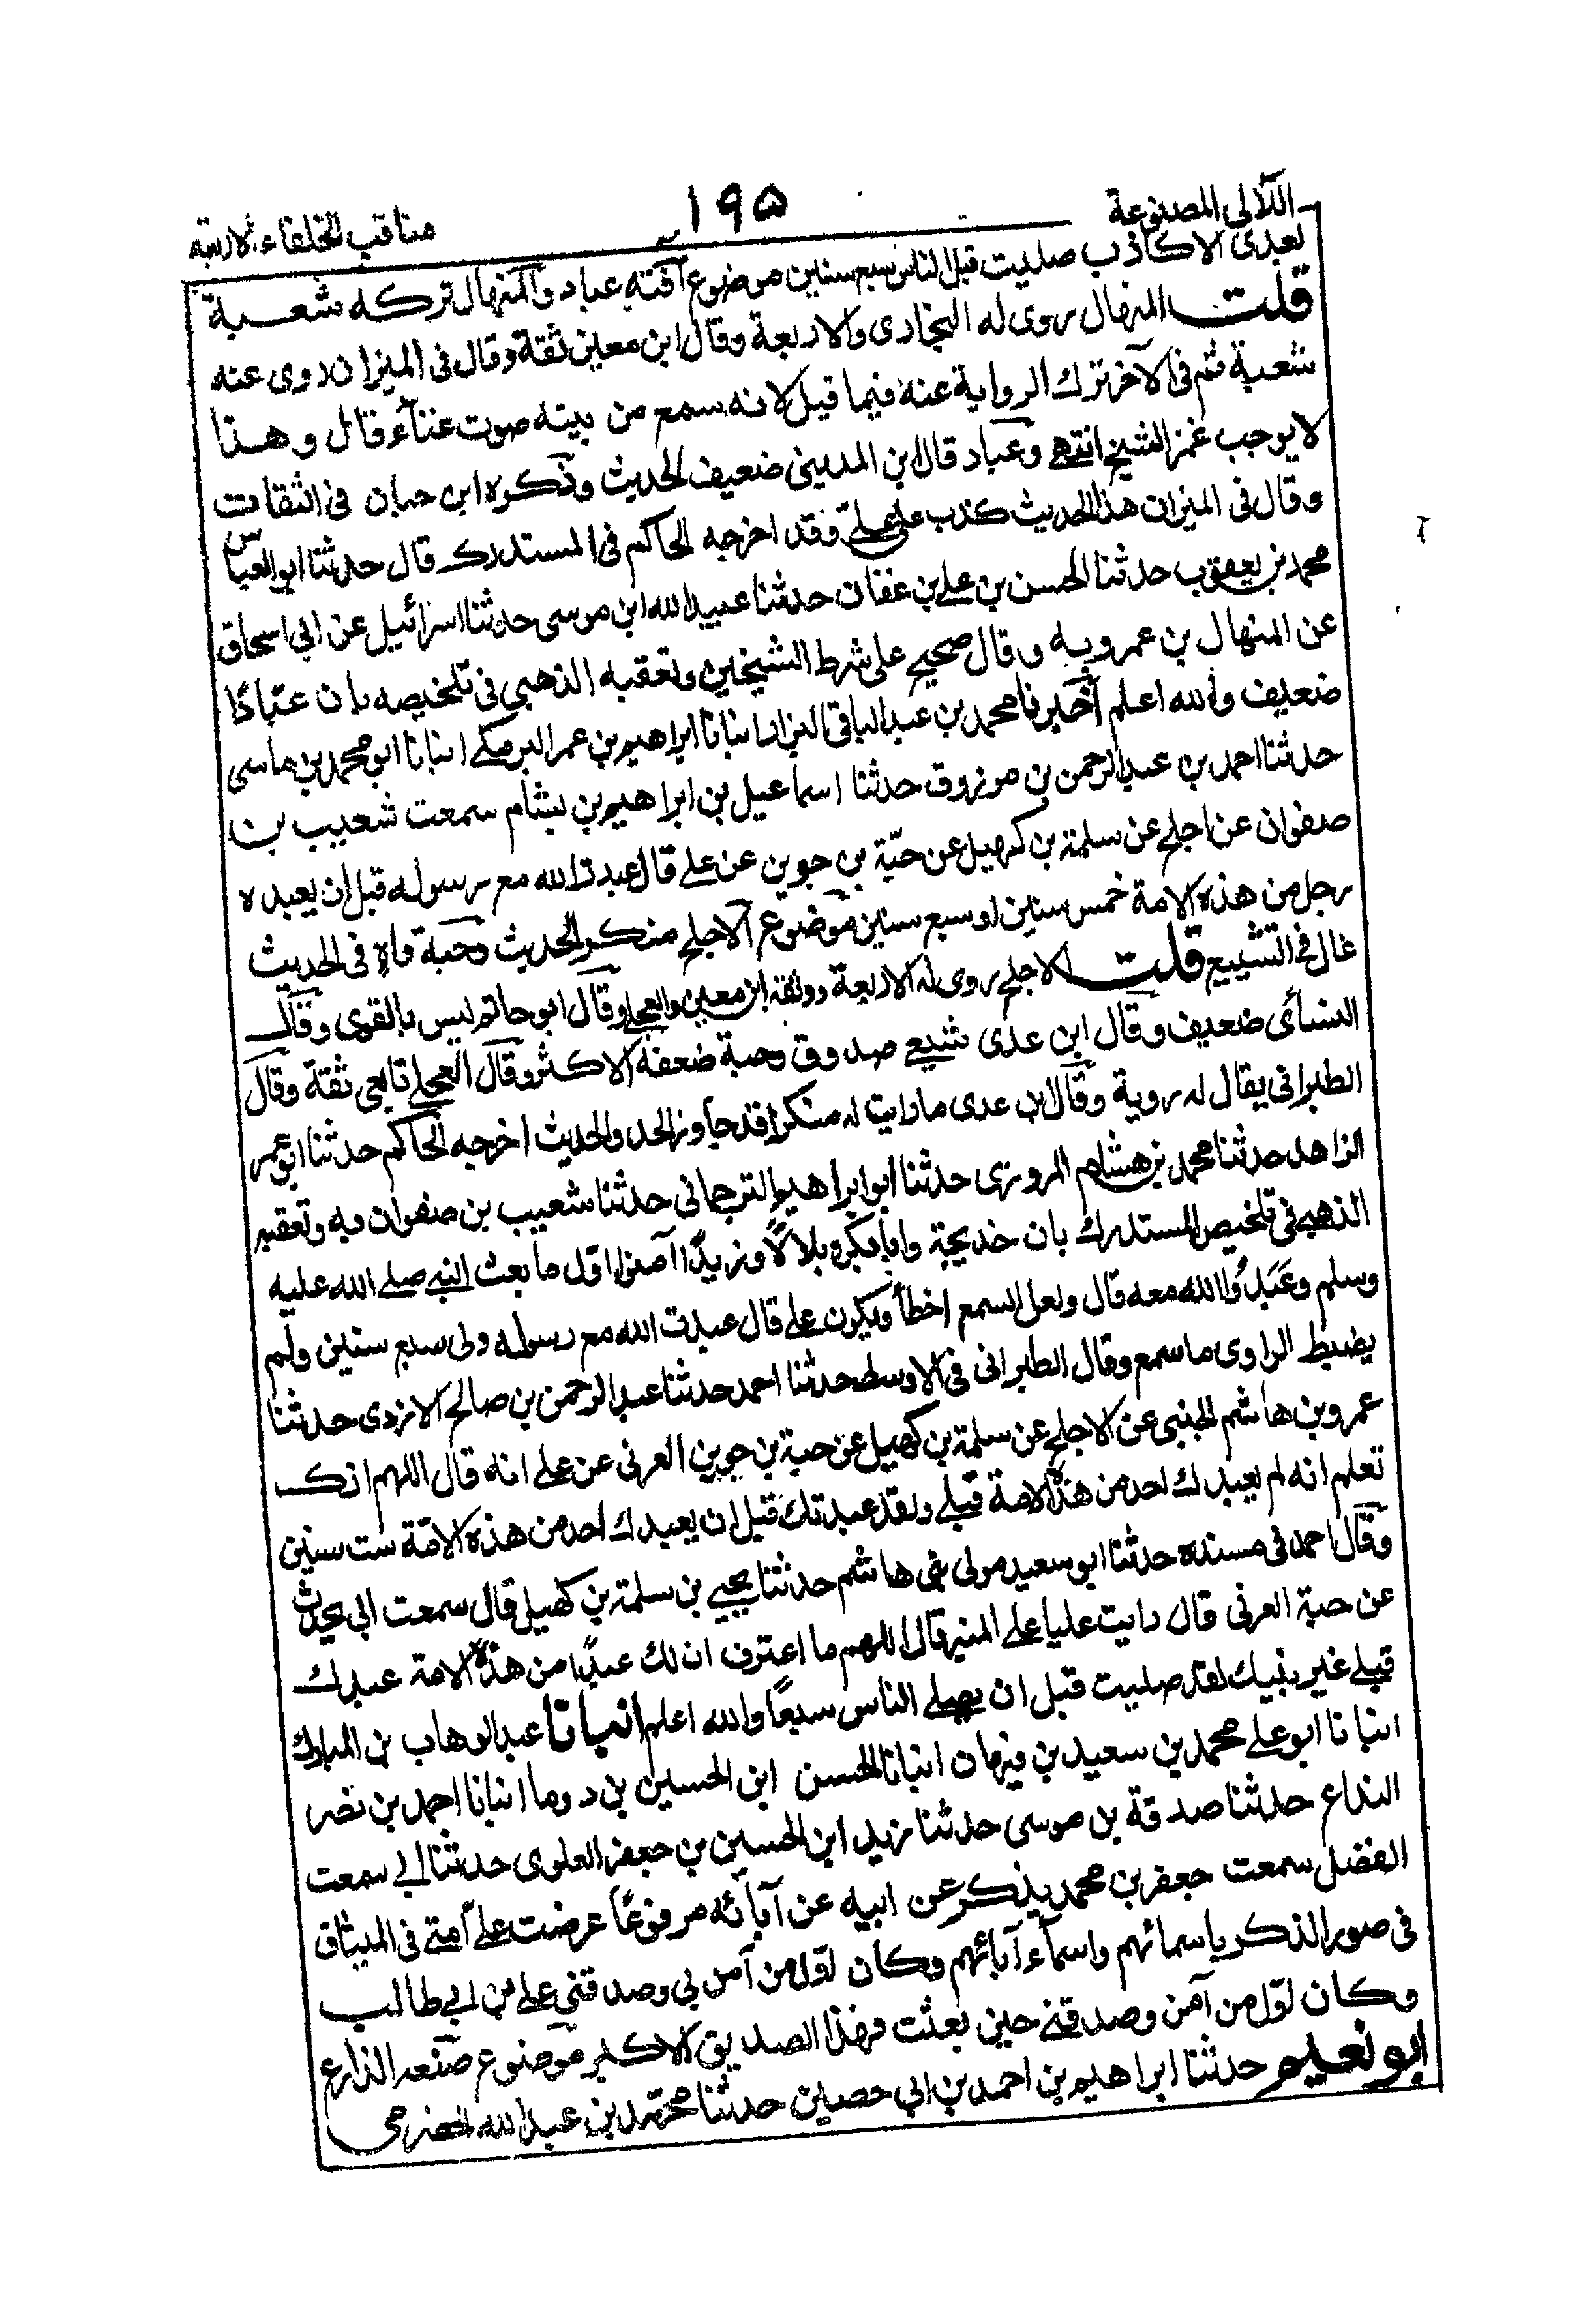 اللآلی المصنوعة
١٩٥
مناقب الخلفاء الاربعة
بعدی الا کاذب صلیت قبل الناس سبع سنین موضوع آفته عباد والمنهال ترکه شعبة
قلت المنهال روی له البخاری والاربعة وقال ابن معین ثقة وقال فی المیزان روی عنه
شعبة ثم فی الآخر ترك الروایة عنه فیما قیل لانه سمع من بیته صوت غناء قال وهذا
لا یوجب غمز الشیخ انتهی وعباد قال ابن المدینی ضعیف الحدیث وذکره ابن حبان فی الثقات
وقال فی المیزان هذا الحدیث کذب علی علی وقد اخرجه الحاکم فی المستدرك قال حدثنا ابو العباس
محمد بن یعقوب حدثنا الحسن بن علی بن عفان حدثنا عبید الله ابن موسی حدثنا اسرائیل عن ابی اسحاق
عن المنهال بن عمرو به وقال صحیح علی شرط الشیخین وتعقبه الذهبی فی تلخیصه بان عبّادًا
ضعیف والله اعلم اخبرنا محمد بن عبد الباقی البزار انبانا ابراهیم بن عمر البرمکی انبانا ابو محمد بن ماسی
حدثنا احمد بن عبد الرحمن بن مرزوق حدثنا اسماعیل بن ابراهیم بن بشام سمعت شعیب بن
صفوان عن اجلح عن سلمة بن کهیل عن حبّة بن جوین عن علی قال عبدت الله مع رسوله قبل ان یعبده
رجل من هذه الامة خمس سنین او سبع سنین موضوع الاجلح منکر الحدیث وحبة واهٍ فی الحدیث
غال فی التشیع قلت الاجلح روی له الاربعة ووثقه ابن معین والعجلی وقال ابو حاتم لیس بالقوی وقال
النسائی ضعیف وقال ابن عدی شیعی صدوق وحبة ضعفه الاکثر وقال العجلی تابعی ثقة وقال
الطبرانی یقال له رویة وقال ابن عدی ما رایت له منکرًا قد جاوز الحد والحدیث اخرجه الحاکم حدثنا ابو عمر
الزاهد حدثنا محمد بن هشام المروزی حدثنا ابو ابراهیم الترجمانی حدثنا شعیب بن صفوان به وتعقبه
الذهبی فی تلخیص المستدرك بان خدیجة وابا بکر وبلالًا وزیدًا آمنوا اول ما بعث النبی صلی الله علیه
وسلم وعَبَدُوا الله معه قال ولعل السمع اخطأ ویکون علی قال عبدت الله مع رسوله ولی سبع سنین ولم
یضبط الراوی ما سمع وقال الطبرانی فی الاوسط حدثنا احمد حدثنا عبد الرحمن بن صالح الازدی حدثنا
عمرو بن هاشم الجنبی عن الاجلح عن سلمة بن کهیل عن حبة بن جوین العرنی عن علی انه قال اللهم انك
تعلم انه لم یعبدك احد من هذه الامة قبلی ولقد عبدتك قبل ان یعبدك احد من هذه الامّة ست سنین
وقال احمد فی مسنده حدثنا ابو سعید مولی بنی هاشم حدثنا یحیی بن سلمة بن کهیل قال سمعت ابی یحدث
عن حبة العرنی قال رایت علیا علی المنبر قال اللهم ما اعترف ان لك عبدًا من هذه الامة عبدك
قبلی غیر نبیك لقد صلیت قبل ان یصلی الناس سبعًا والله اعلم انبانا عبد الوهاب بن المبارك
انبانا ابو علی محمد بن سعید بن نبهان انبانا الحسن ابن الحسین بن دوما انبانا احمد بن نصر
الذراع حدثنا صدقة بن موسی حدثنا یزید ابن الحسین بن جعفر العلوی حدثنا ابی سمعت
الفضل سمعت جعفر بن محمد یذکر عن ابیه عن آبائه مرفوعًا عرضت علیّ امتی فی المیثاق
فی صور الذکر باسمائهم واسمآء آبائهم وکان اوّل من آمن بی وصدقنی علی بن ابی طالب
وکان اوّل من آمن وصدقنی حین بعثت فهذا الصدیق الاکبر موضوع صنعه الذارع
ابو نعیم حدثنا ابراهیم بن احمد بن ابی حصین حدثنا محمّد بن عبد الله الحضرمی